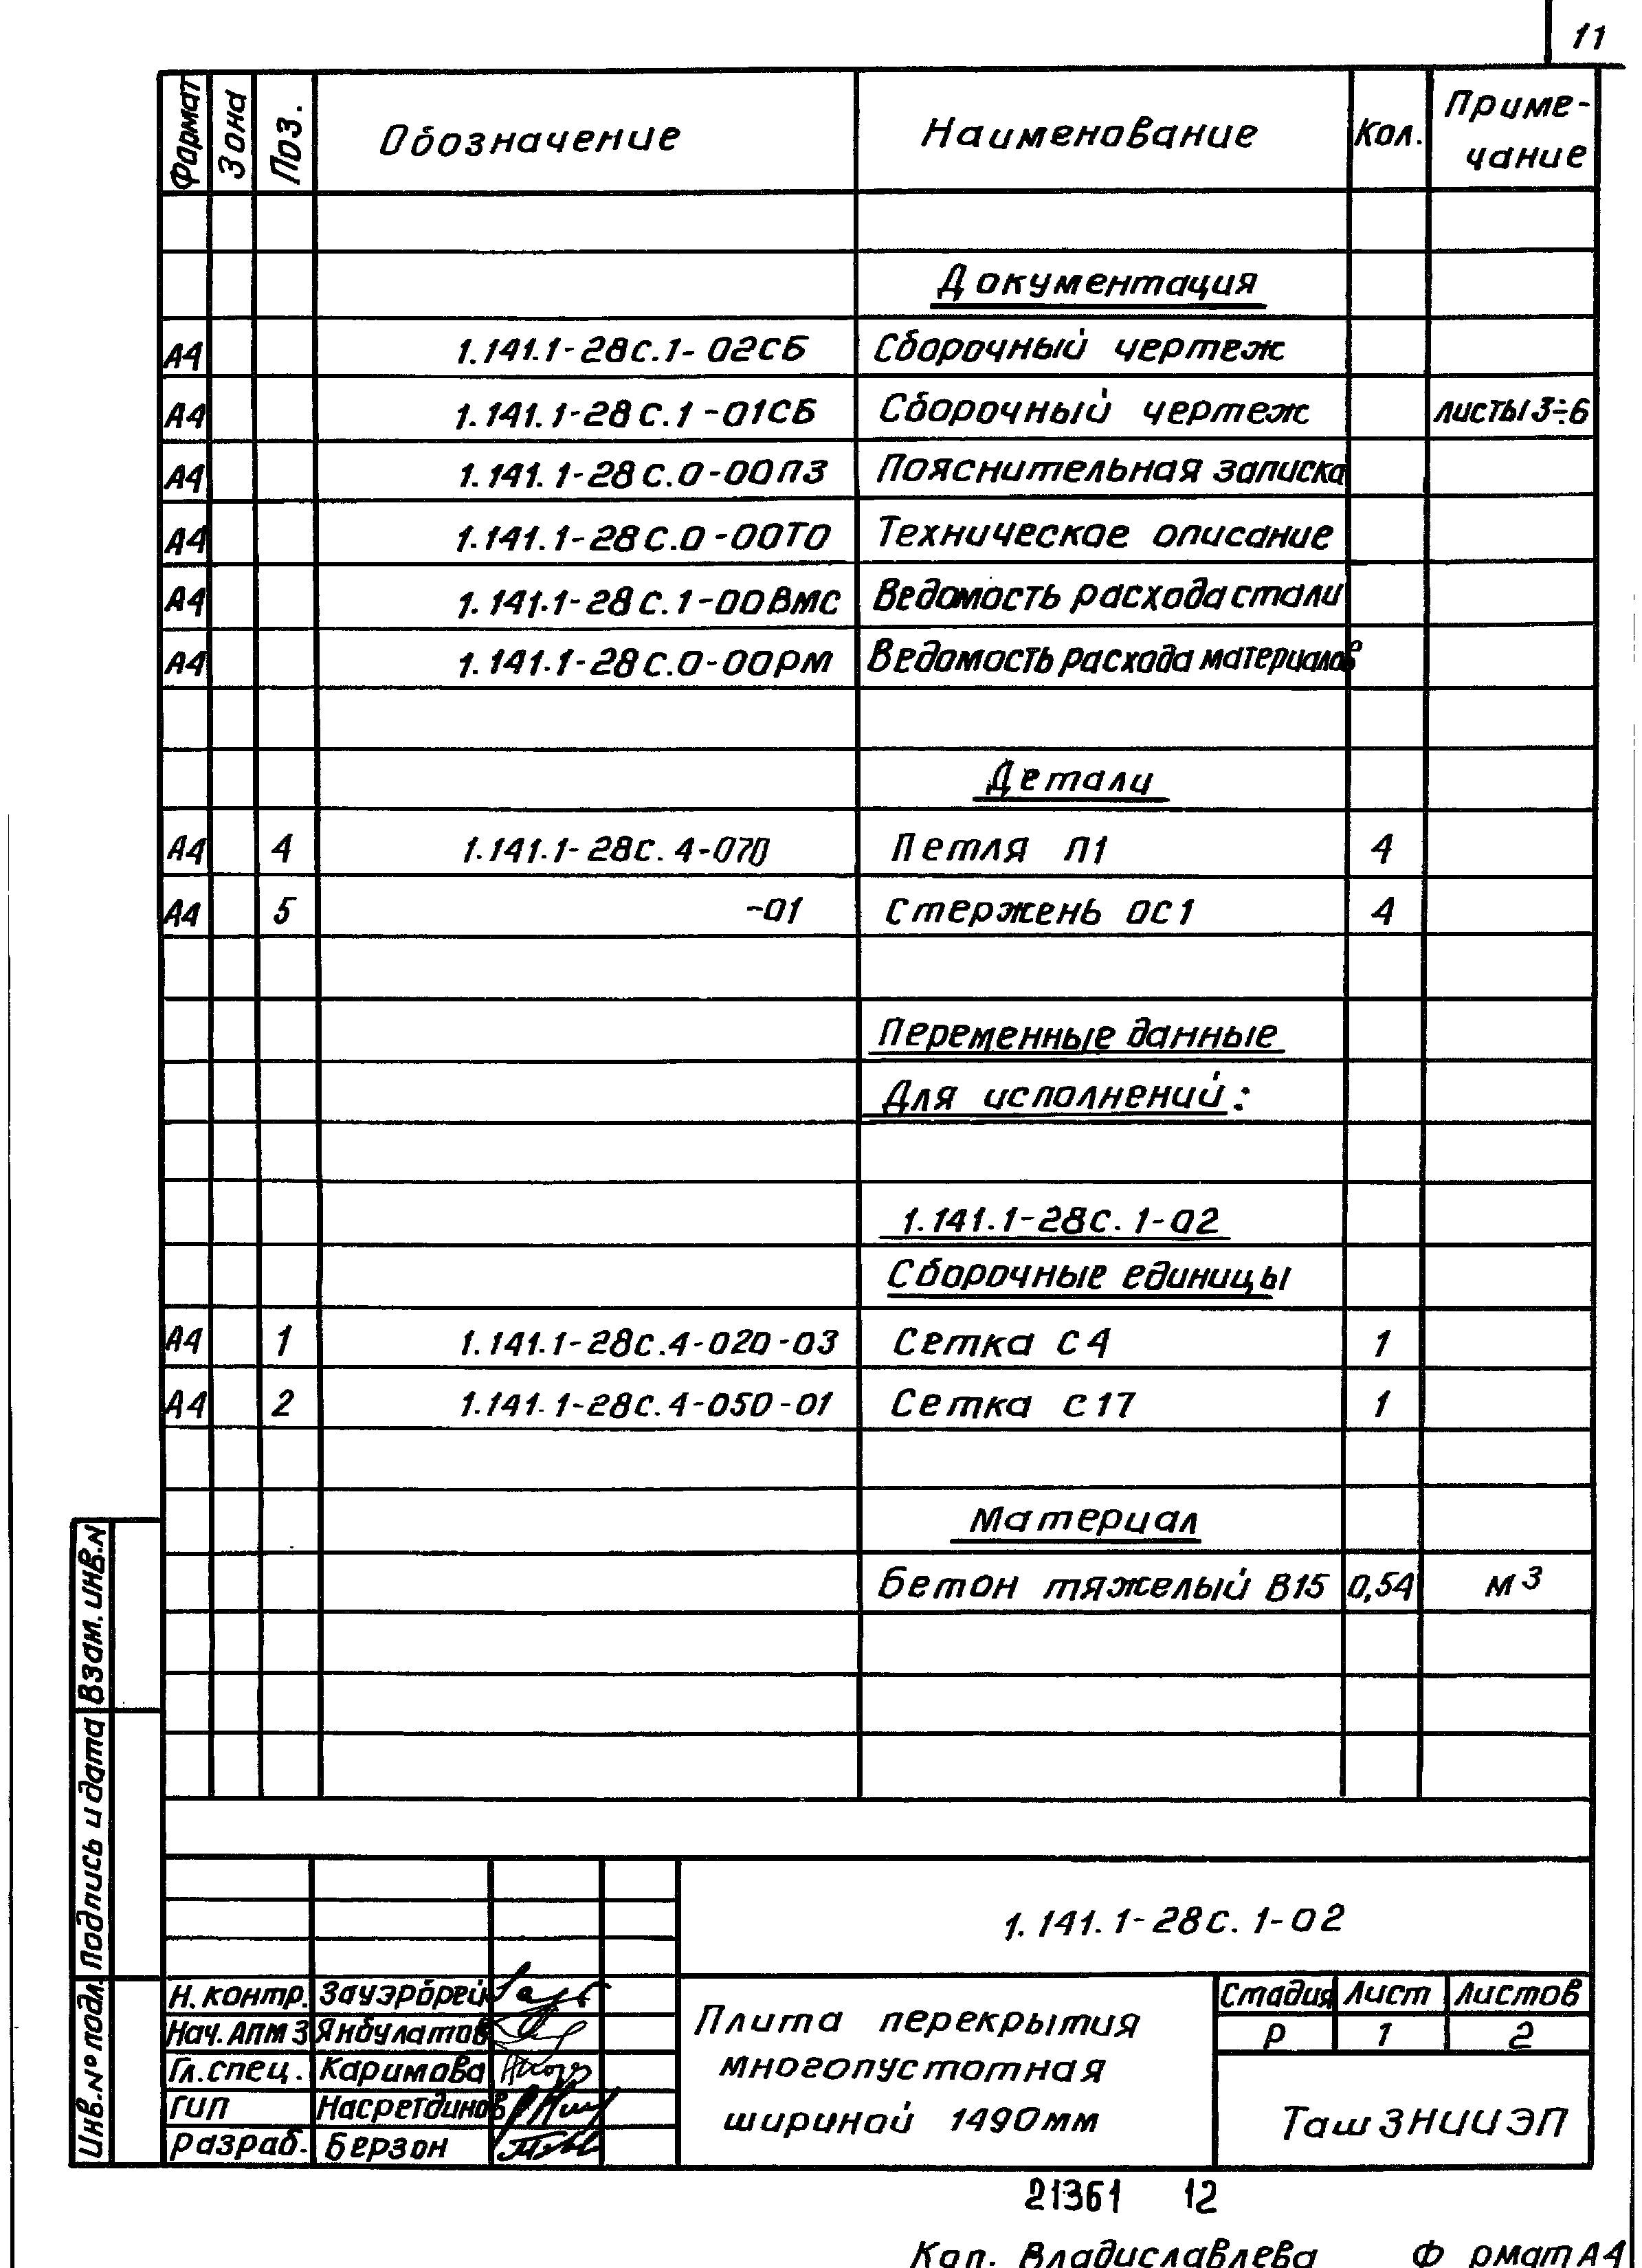 11
Формат Зона Поз. Обозначение Наименование Кол. Приме-
чание
Документация
А4 1.141.1-28с.1-02СБ Сборочный чертеж
А4 1.141.1-28с.1-01СБ Сборочный чертеж листы 3÷6
А4 1.141.1-28с.0-00ПЗ Пояснительная записка
А4 1.141.1-28с.0-00ТО Техническое описание
А4 1.141.1-28с.1-00ВМС Ведомость расхода стали
А4 1.141.1-28с.0-00РМ Ведомость расхода материалов
Детали
А4 4 1.141.1-28с.4-070 Петля П1 4
А4 5 -01 Стержень ОС1 4
Переменные данные
Для исполнений:
1.141.1-28с.1-02
Сборочные единицы
А4 1 1.141.1-28с.4-020-03 Сетка С4 1
А4 2 1.141.1-28с.4-050-01 Сетка С17 1
Материал
Бетон тяжелый В15 0,54 м³
Взам. инв. N
Подпись и дата
Инв. № подл.
1.141.1-28с.1-02
Н. контр. Зауэрбрей
Нач. АПМ 3 Янбулатов
Гл. спец. Каримова
ГИП Насретдинов
Разраб. Берзон
Плита перекрытия
многопустотная
шириной 1490мм
Стадия Лист Листов
Р 1 2
ТашЗНИИЭП
21361 12
Кап. Владиславлева Ф рмат А4